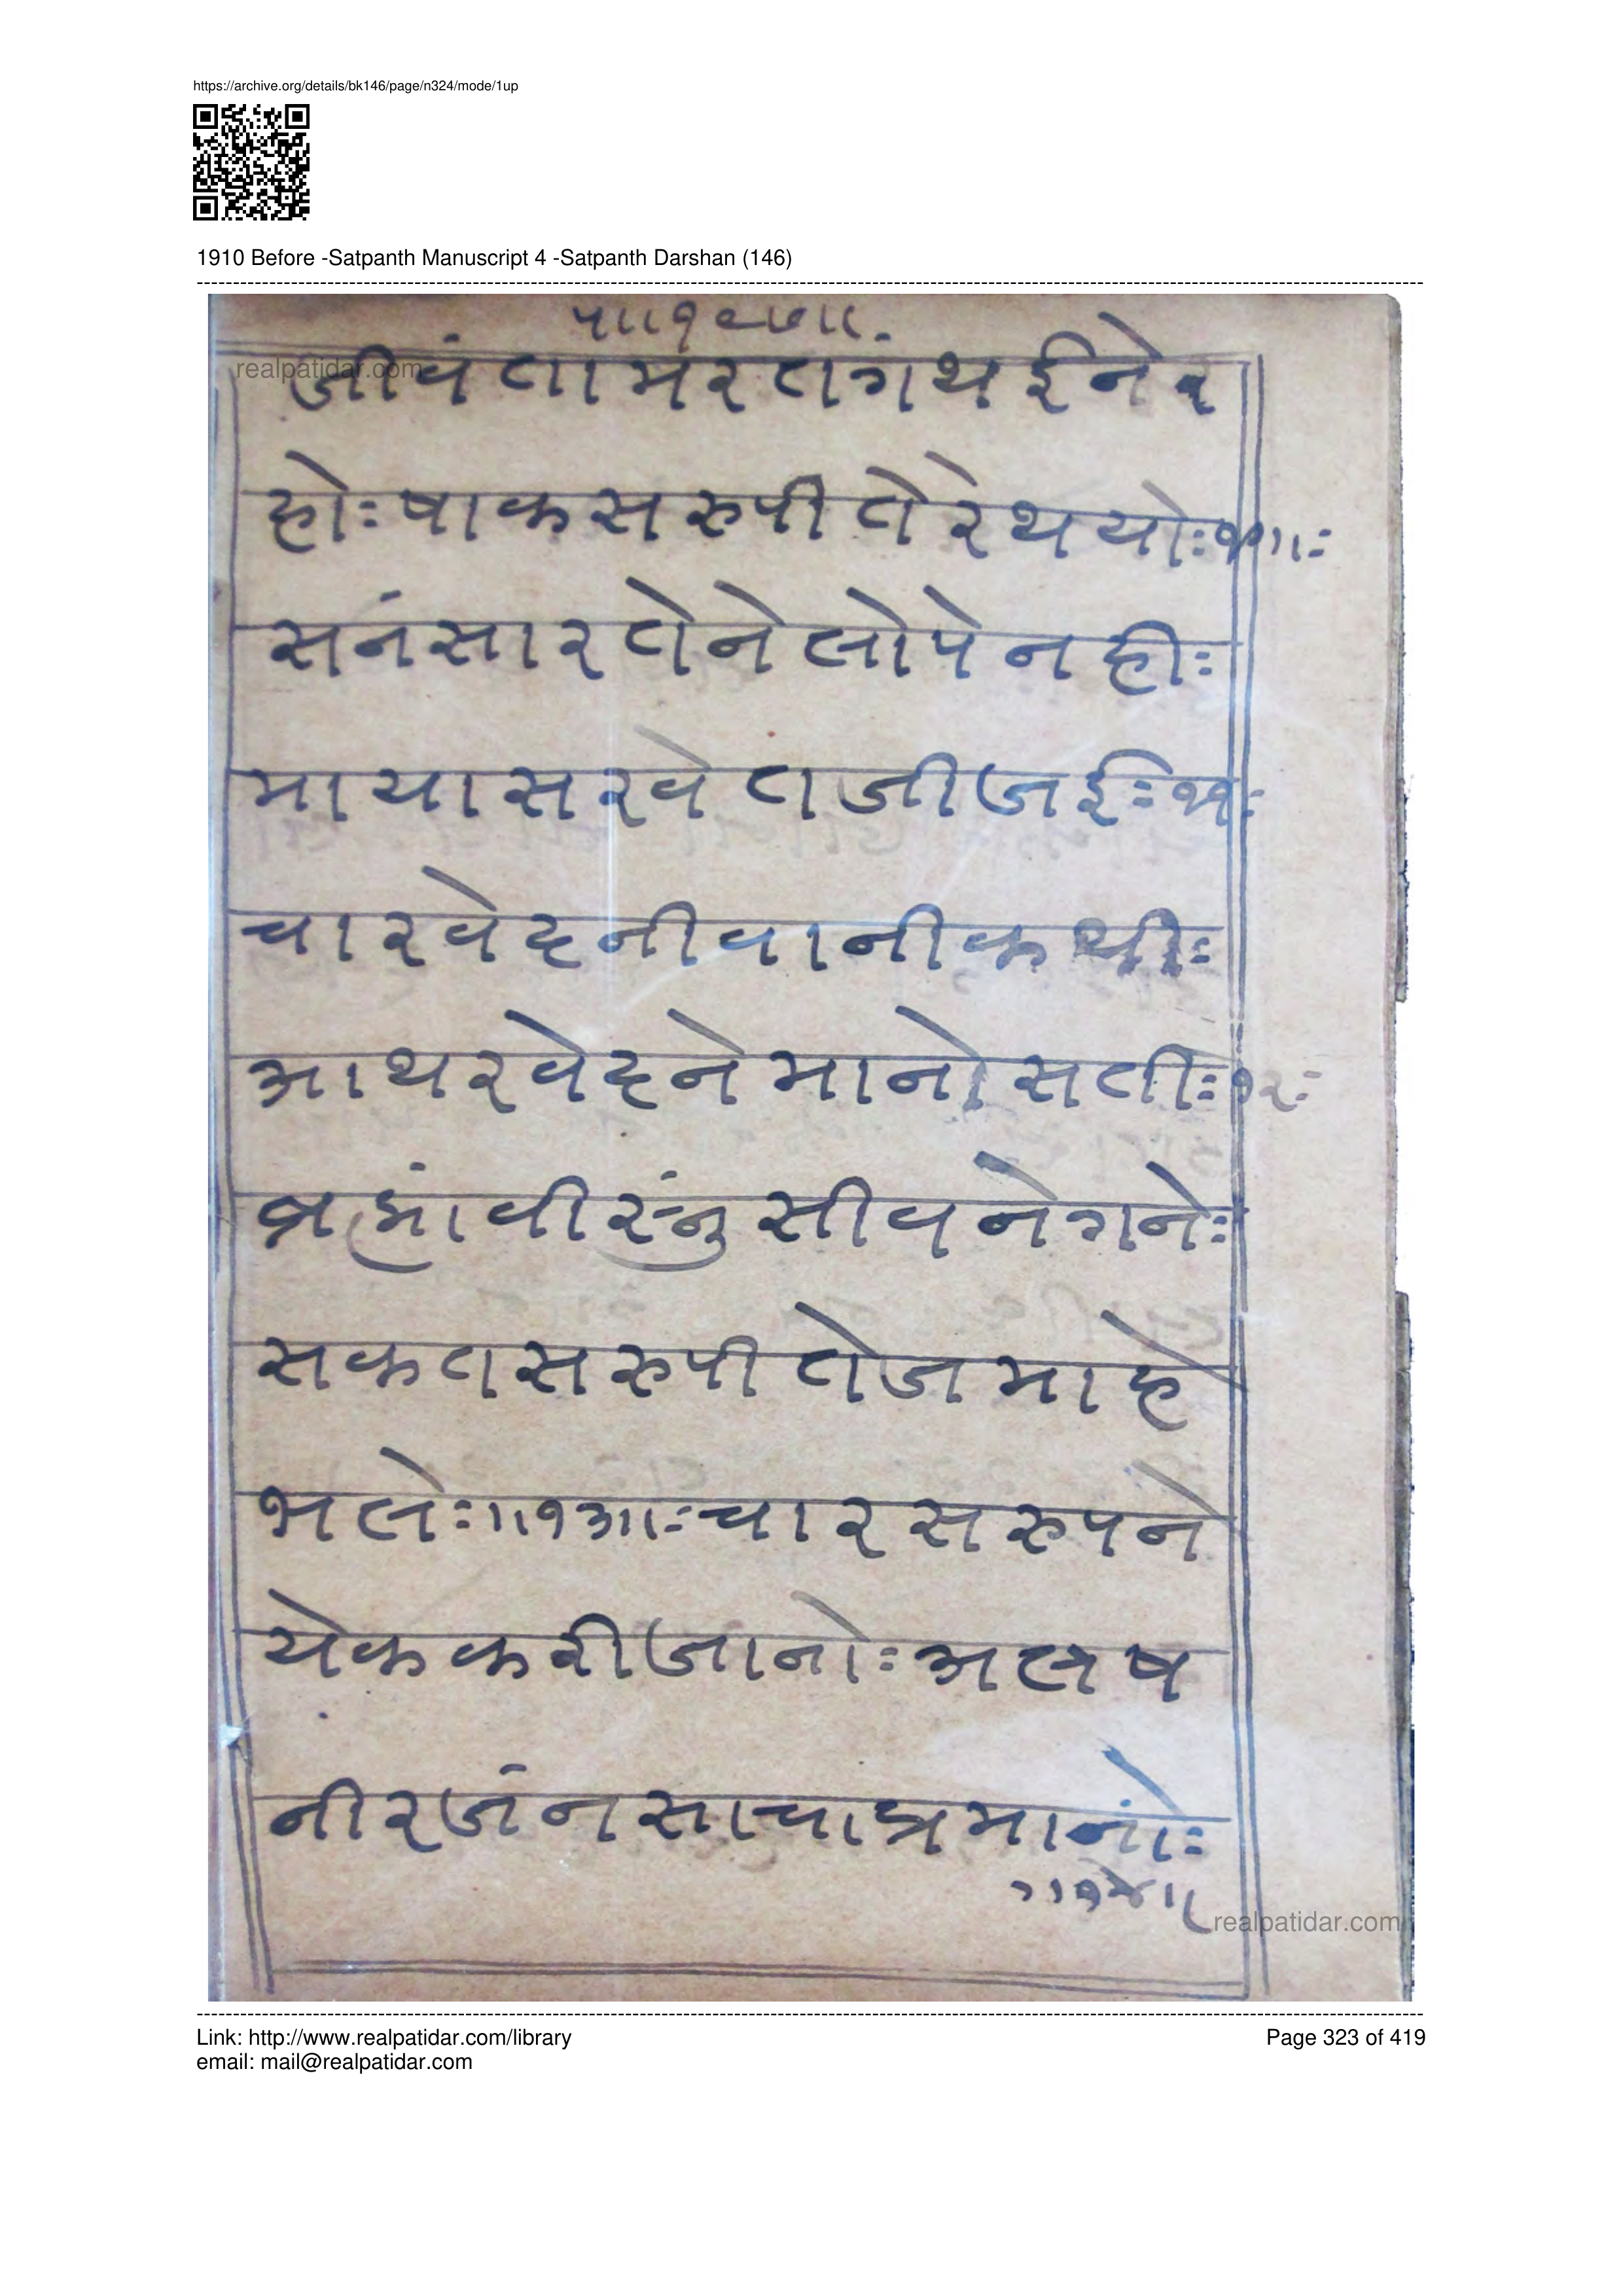 https://archive.org/details/bk146/page/n324/mode/1up
1910 Before -Satpanth Manuscript 4 -Satpanth Darshan (146)
realpatidar.com
जीवंतामरतगंथईनेर
होःषाकसरुपीतेरेथयोः
सनंसारतेनेलोपेनहीः
मायासरवेतजीजईः
चारवेदनीवानीकथीः
आथरवेदनेमानोसतीः१२ः
ब्रह्मांवीस्नुंसीवनेगनेः
सकतसरुपीतेजमाहे
भलेः॥१३॥ःचारसरुपने
येककरीजानोःअलष
नीरजंनसाचाप्रमानोंः
॥१४॥
realpatidar.com
Link: http://www.realpatidar.com/library
Page 323 of 419
email: mail@realpatidar.com